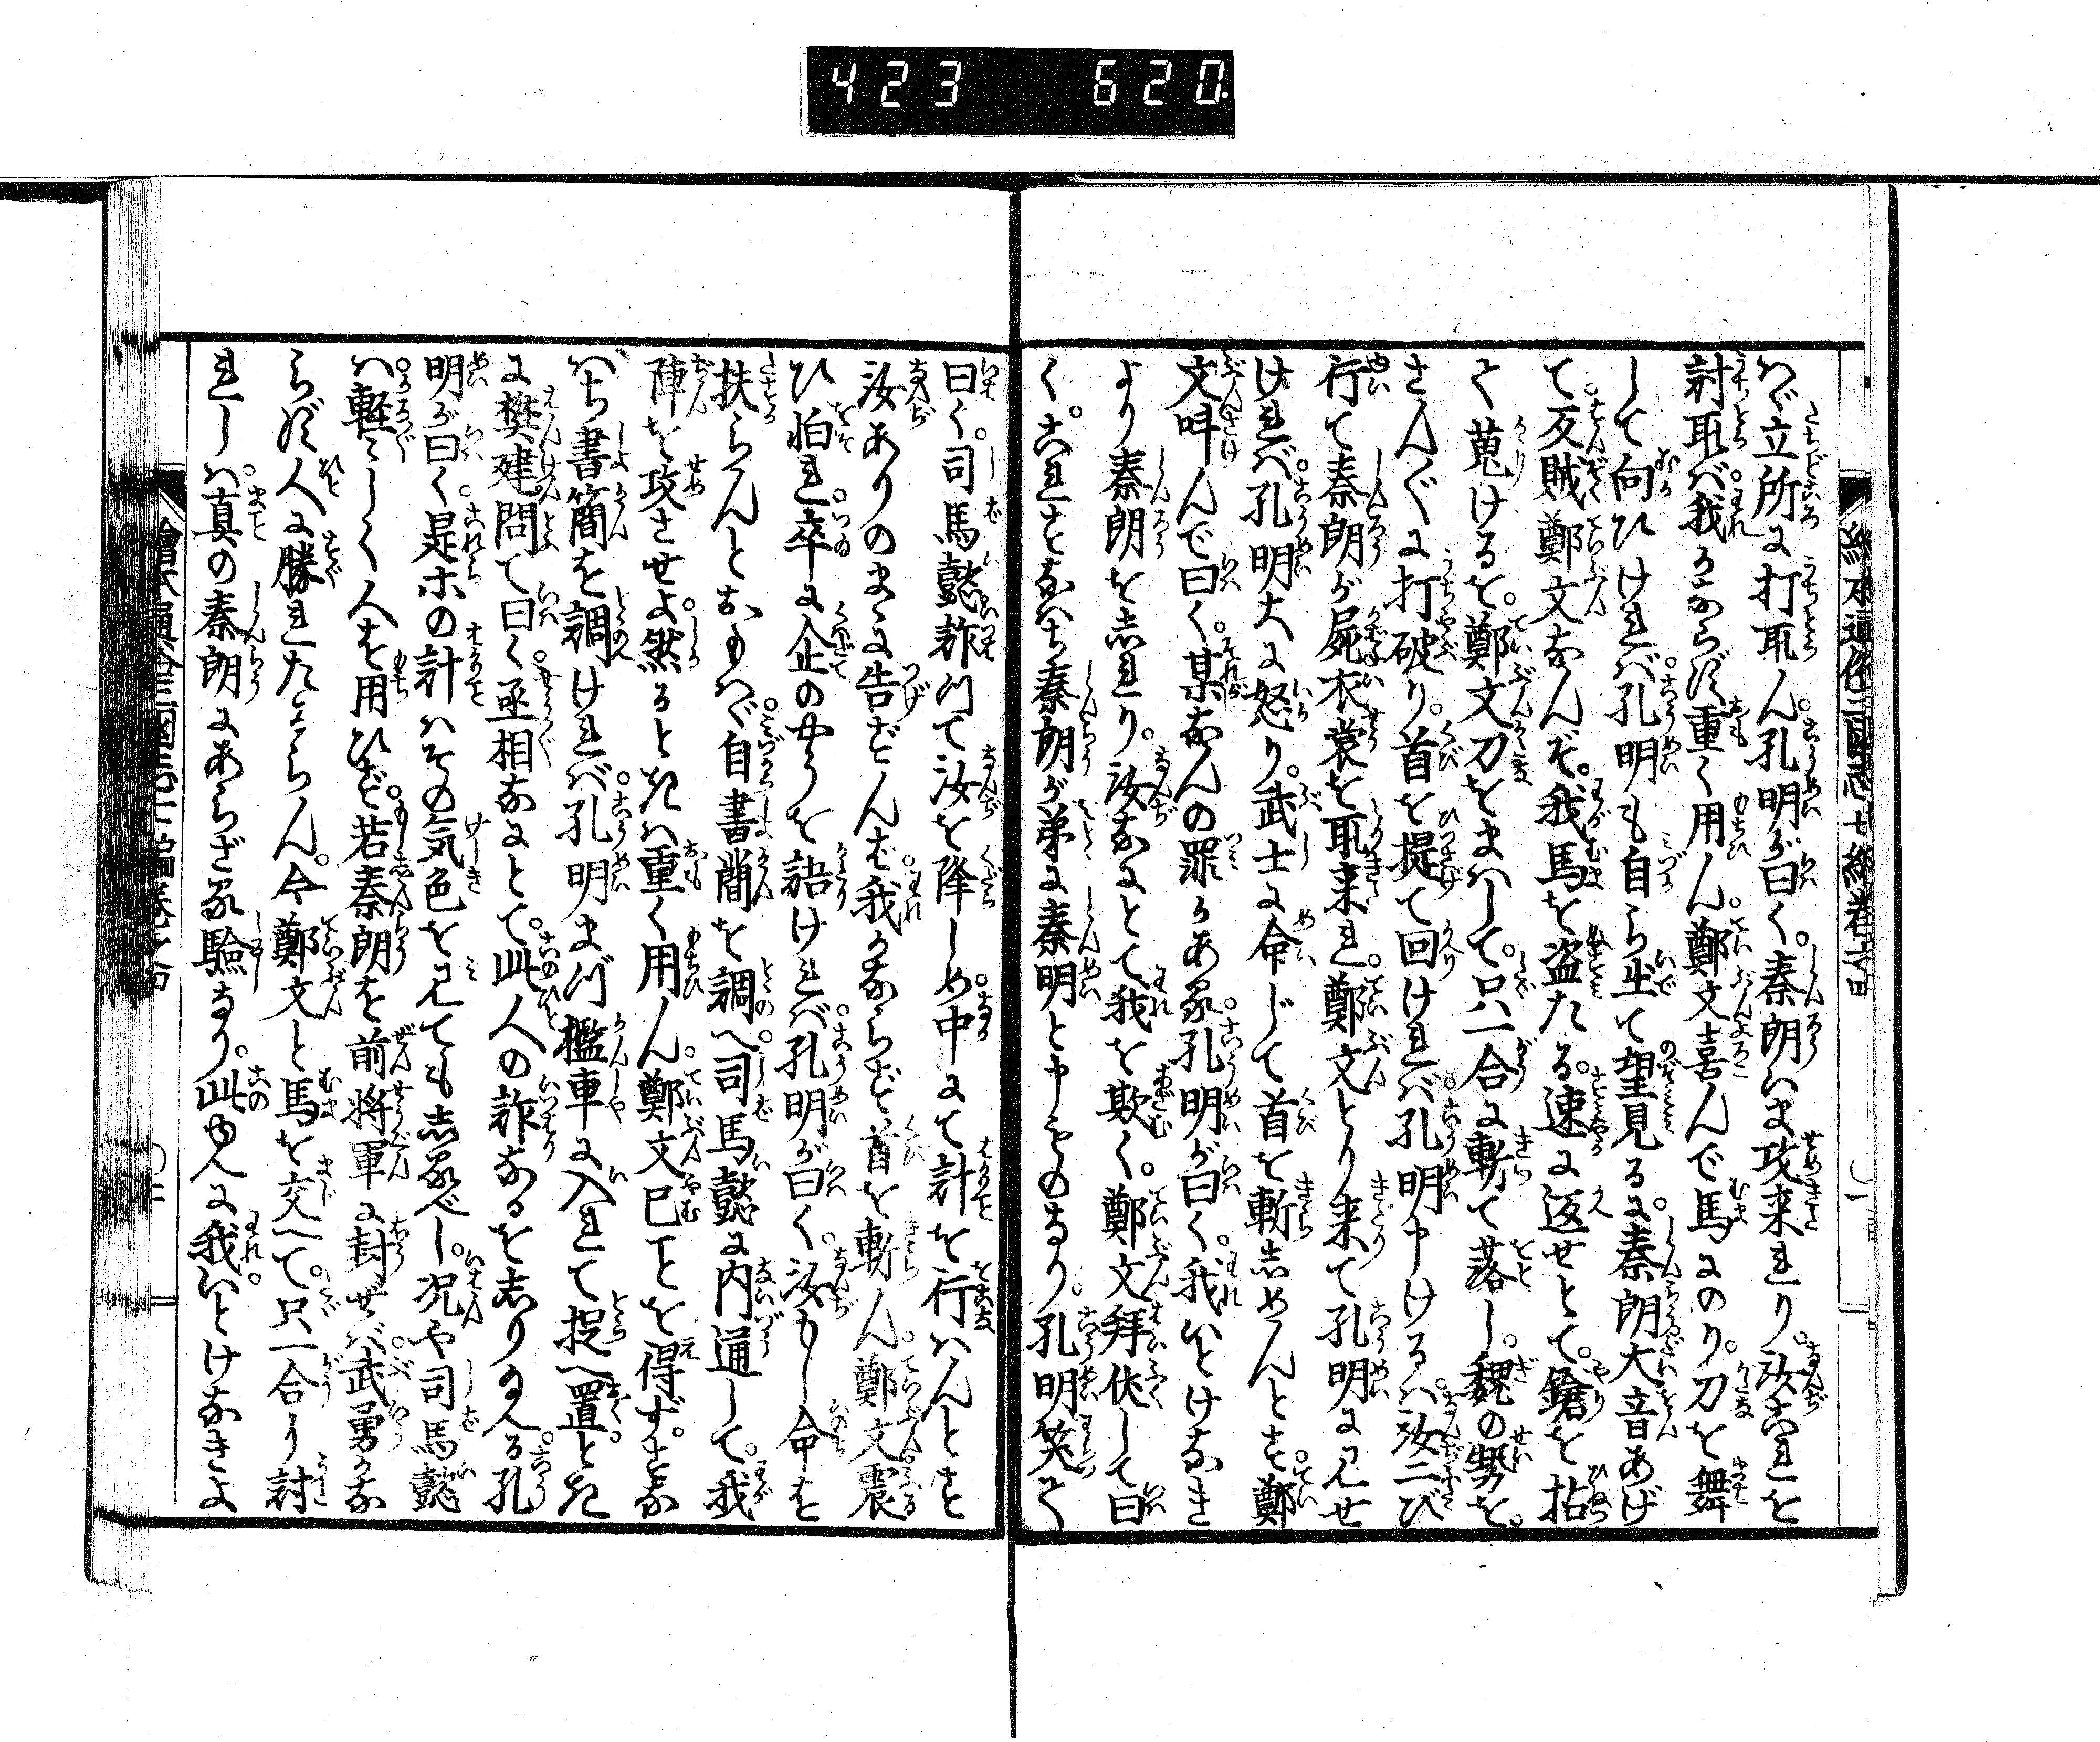 423 620
バ立所に打取ん。孔明が曰く。秦朗いま攻来れり。汝これを
討取バ我かならず重く用ん。鄭文喜んで馬にのり。刀を舞
して向ひければ。孔明も自ら出て望見るに。秦朗大音あげ
て。反賊鄭文なんぞ。我馬を盗たる。速に返せとて。鎗を拈
て蒐けるを。鄭文刀をまはして。只一合に斬て落し。魏の勢を。
さんぐに打破り。首を提て回ければ。孔明申けるハ。汝二び
行て秦朗が屍衣裳を取来れ。鄭文とり来て孔明に見せ
ければ。孔明大に怒り。武士に命じて首を斬しめんとす。鄭
文呌んで曰く。某なんの罪かある。孔明が曰く。我いとけなき
より秦朗を志れり。汝なにとて我を欺く。鄭文拜伏して曰
く。これすなはち秦朗が弟に秦明と申ものなり。孔明笑て
曰く。司馬懿詐りて汝を降しめ。中にて計を行ハんとす
汝ありのまゝに告ざんば。我かならず首を斬ん。鄭文震
ひ怕れ。卒に企のやうを語ければ。孔明が曰く。汝もし命を
扶らんとおもハヾ。自書簡を調へ。司馬懿に内通して。我
陣を攻させよ。然るときハ重く用ん。鄭文已ことを得ず。すな
ハち書簡を調ければ。孔明まづ檻車に入れて捉へ置。とき
に樊建問て曰く。丞相なにとて。此人の詐なるを志りぬる。孔
明が曰く。是ホの計ハその気色を見ても志るべし。况や司馬懿
ハ。軽〻しく人を用ひず。若秦朗を前将軍に封ぜバ。武勇かな
らず人に勝れたるらん。今鄭文と馬を交へて。只一合り討
れしハ。真の秦朗にあらざる驗なり。此ゆへに我。いとけなきよ